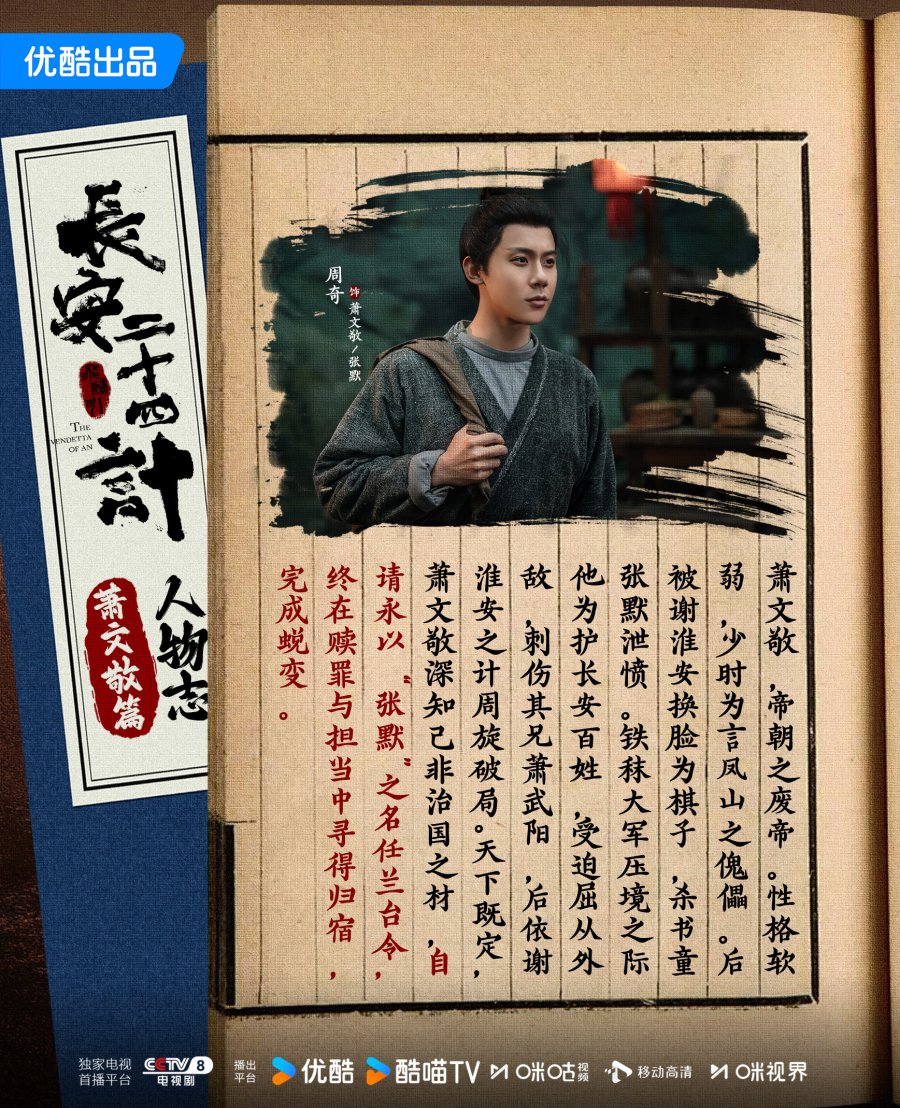 优酷出品
長安二十四計
THE
VENDETTA
OF AN
人物志
萧文敬篇
周奇
饰
萧文敬/张默
萧文敬，帝朝之废帝。性格软
弱，少时为言凤山之傀儡。后
被谢淮安换脸为棋子，杀书童
张默泄愤。铁秣大军压境之际
他为护长安百姓，受迫屈从外
敌，刺伤其兄萧武阳，后依谢
淮安之计周旋破局。天下既定，
萧文敬深知己非治国之材，自
请永以“张默”之名任兰台令，
终在赎罪与担当中寻得归宿，
完成蜕变。
独家电视
首播平台
CCTV 8
电视剧
播出
平台
优酷
酷喵TV
咪咕视频
移动高清
咪视界